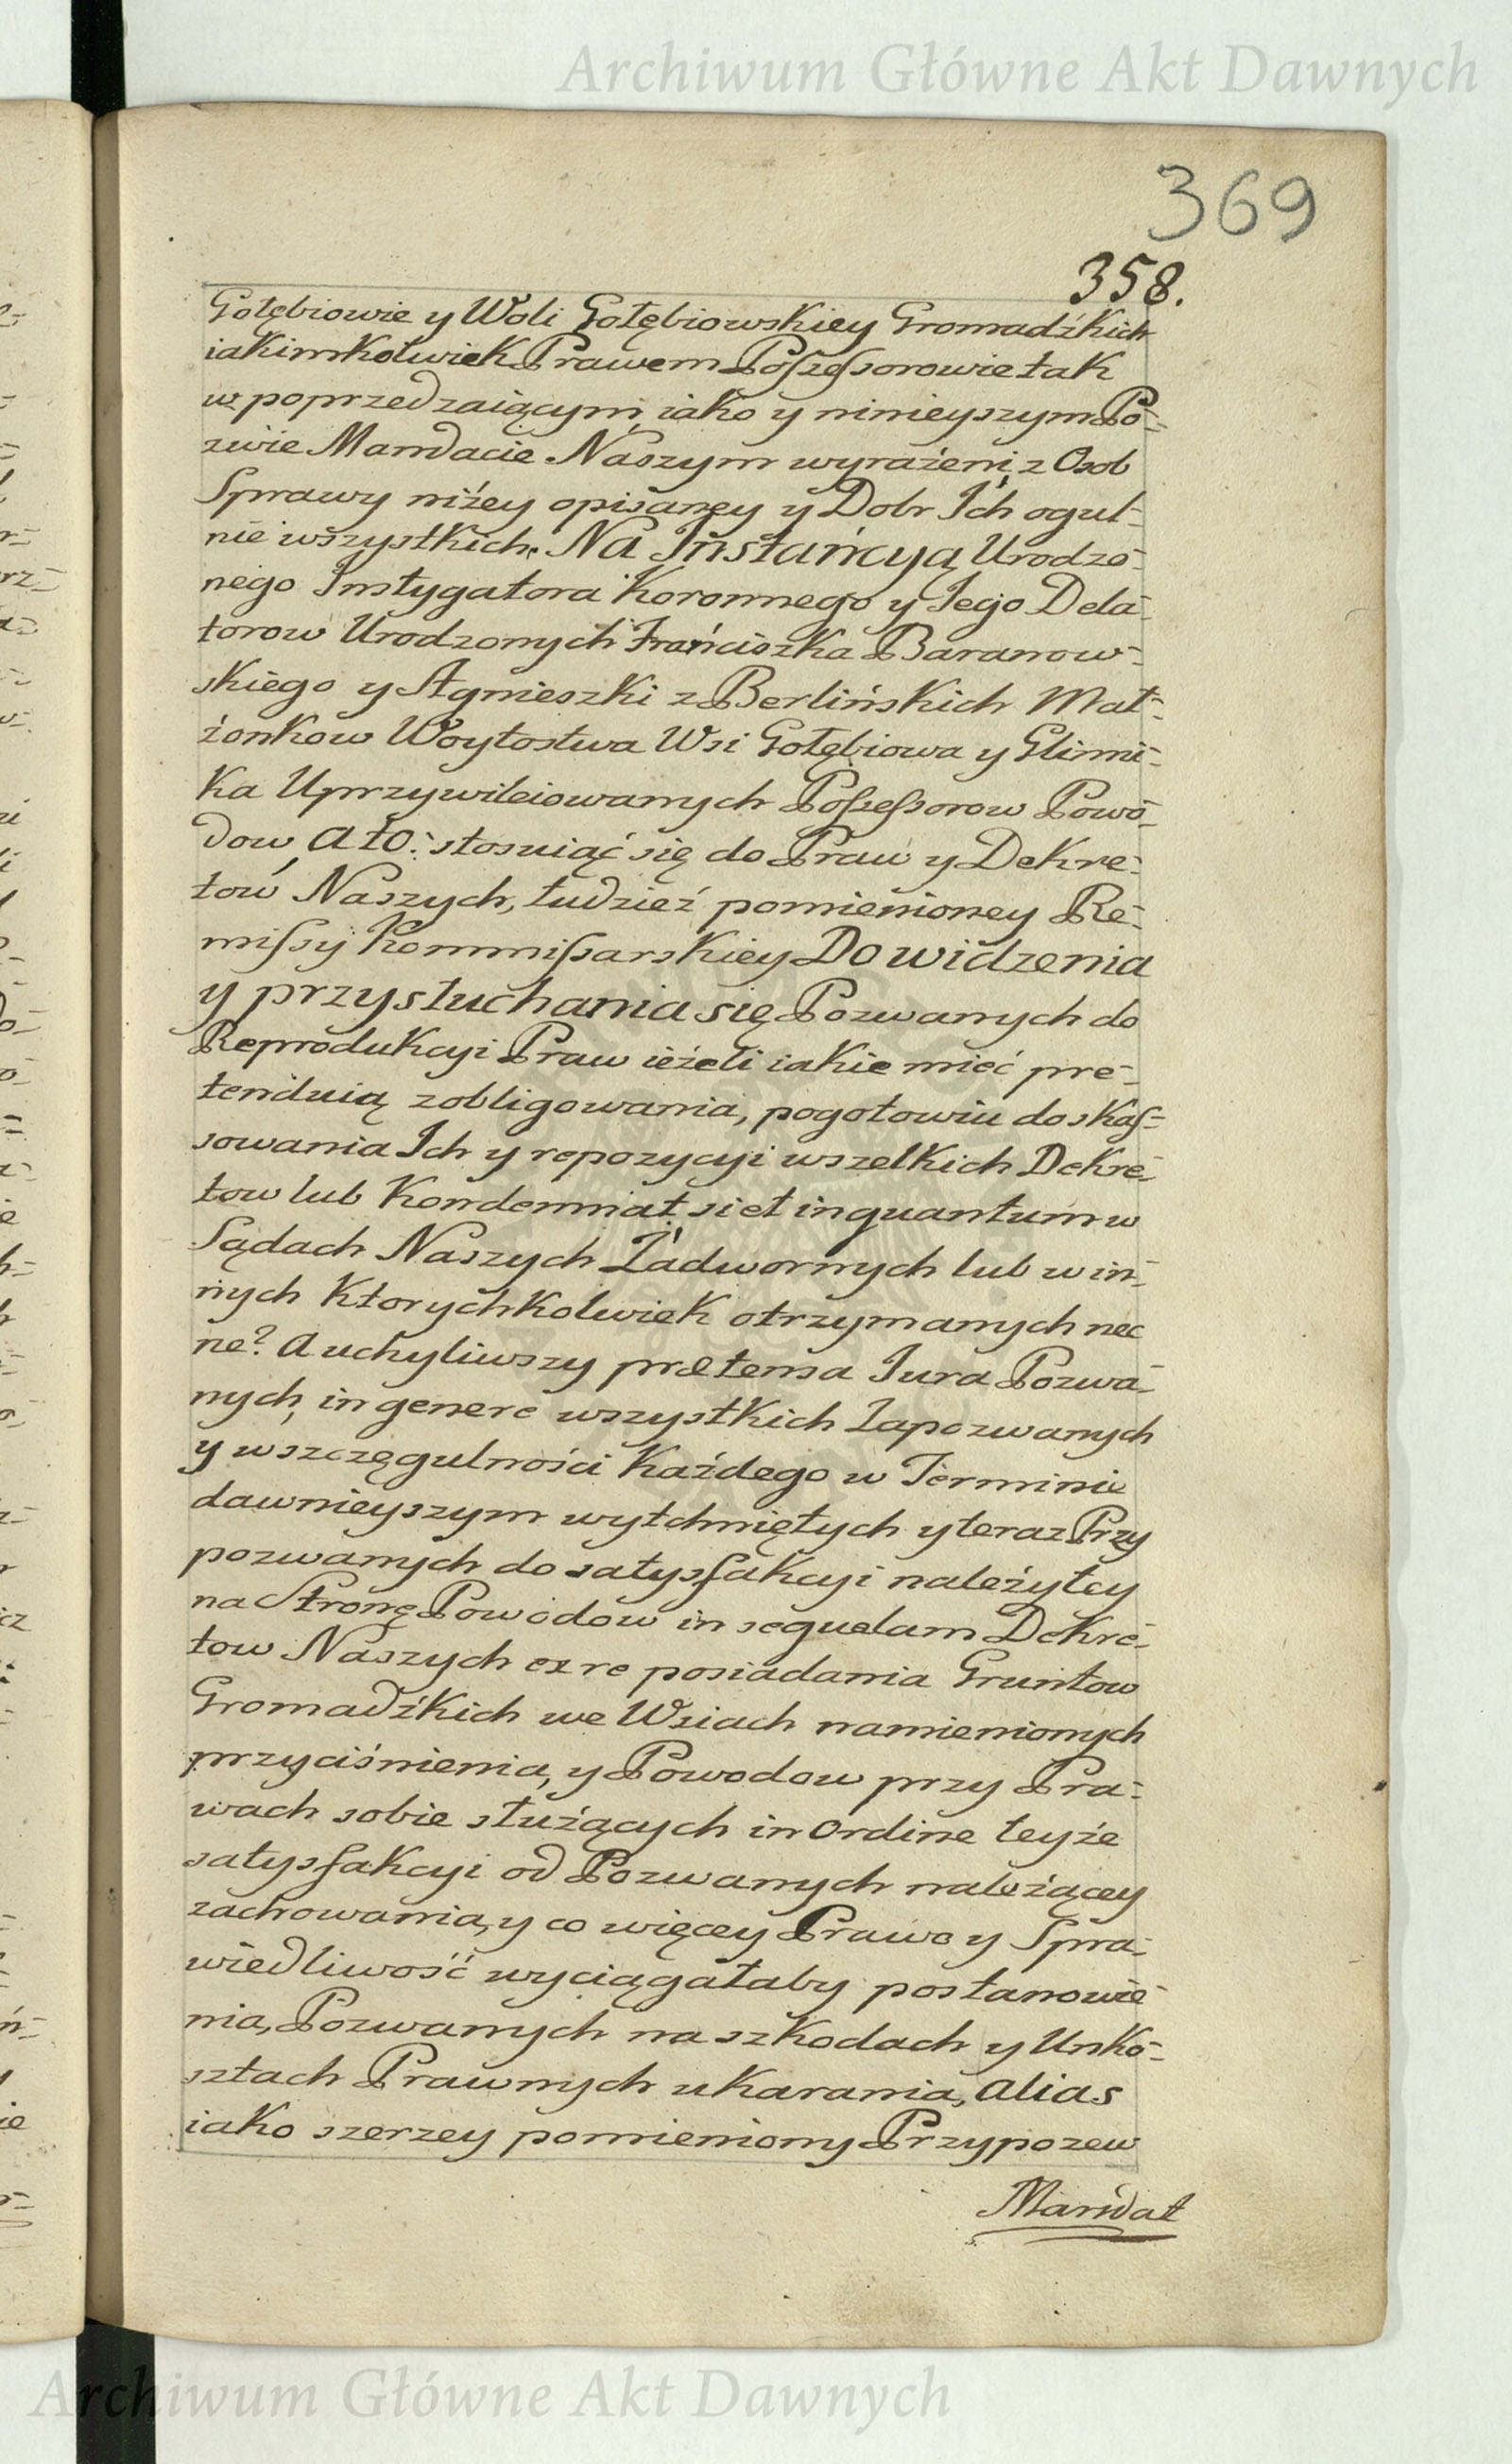 Archiwum Główne Akt Dawnych
369
358.
Gołębiowie y Woli Gołębiowskiey Gromadźkich
iakimkolwiek Prawem Possessorowie tak
w poprzedzaiącym iako y ninieyszym Po-
zwie Mandacie Naszym wyrażeni z Osob
Sprawy niżey opisaney y Dobr Ich ogul-
nie wszystkich. Na Instancyą Urodzo-
nego Instygatora Koronnego y Jego Dela-
torow Urodzonych Franciszka Baranow-
skiego y Agnieszki z Berlińskich Mał-
żonkow Woytostwa Wsi Gołębiowa y Glinni-
ka Uprzywileiowanych Possessorow Powo-
dow, a to: stosuiąć się do Praw y Dekre-
tow Naszych, tudzież pomienioney Re-
missÿ Kommissarskiey Do widzenia
y przysłuchania się Pozwanych do
Reprodukcyi Praw ieżeli iakie mieć pre-
tenduią zobligowania, pogotowiu do skas-
sowania Ich y repozycyi wszelkich Dekre-
tow lub Kondemnat si et inquantum w
Sądach Naszych Zadwornych lub w in-
nych ktorychkolwiek otrzymanych nec
ne? A uchyliwszy prætensa Jura Pozwa-
nych, in genere wszystkich Zapozwanych
y wszczegulności każdego w Terminie
dawnieyszym wytchniętych y teraz Przy
pozwanych do satysfakcyi należytey
na Stronę Powodow in sequelam Dekre-
tow Naszych ex re posiadania Gruntow
Gromadźkich we Wsiach namienionych
przyciśnienia, y Powodow przy Pra-
wach sobie służących in Ordine teyże
satysfakcyi od Pozwanych należącey
zachowania, y co więcey Prawo y Spra-
wiedliwość wyciągałaby postanowie-
nia, Pozwanych na szkodach y Unko-
sztach Prawnych ukarania, alias
iako szerzey pomieniony Przypozew
Mandat
Archiwum Główne Akt Dawnych